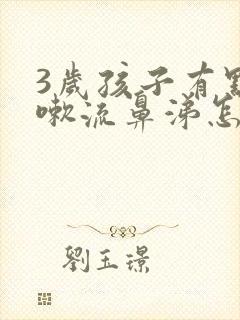 3歲孩子有點
嗽流鼻涕怎
劉玉璟